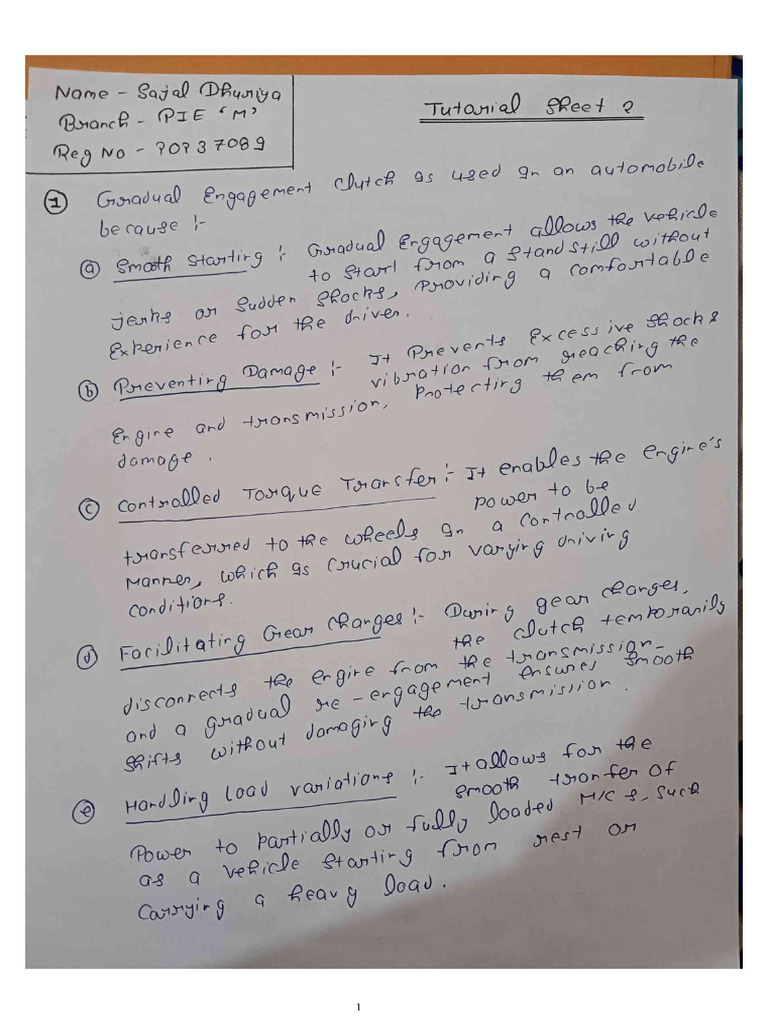 Name - Sajal Dhuriya
Branch - PIE 'M'
Reg No - 20237089
Tutarial Sheet 2
1 Gradual Engagement clutch is used in an automobile
because :-
a Smooth Starting :- Gradual Engagement allows the vehicle
to start from a standstill without
jerks or sudden shocks, providing a comfortable
Experience for the driver.
b Preventing Damage :- It Prevents Excessive shocks
vibration from reaching the
Engine and transmission, Protecting them from
damage.
c Controlled Torque Transfer :- It enables the engine's
power to be
transferred to the wheels in a controlled
manner, which is crucial for varying driving
conditions.
d Facilitating Gear Changes :- During gear changes,
the clutch temporarily
disconnects the engine from the transmission-
and a gradual re-engagement ensures smooth
shifts without damaging the transmission.
e Handling Load variations :- It allows for the
smooth tranfer of
Power to partially or fully loaded M/Cs, such
as a vehicle starting from rest or
Carrying a heavy load.
1